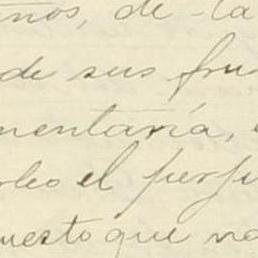 ños, de la
de sus fru
mentaria,
leo el perju
uesto que no